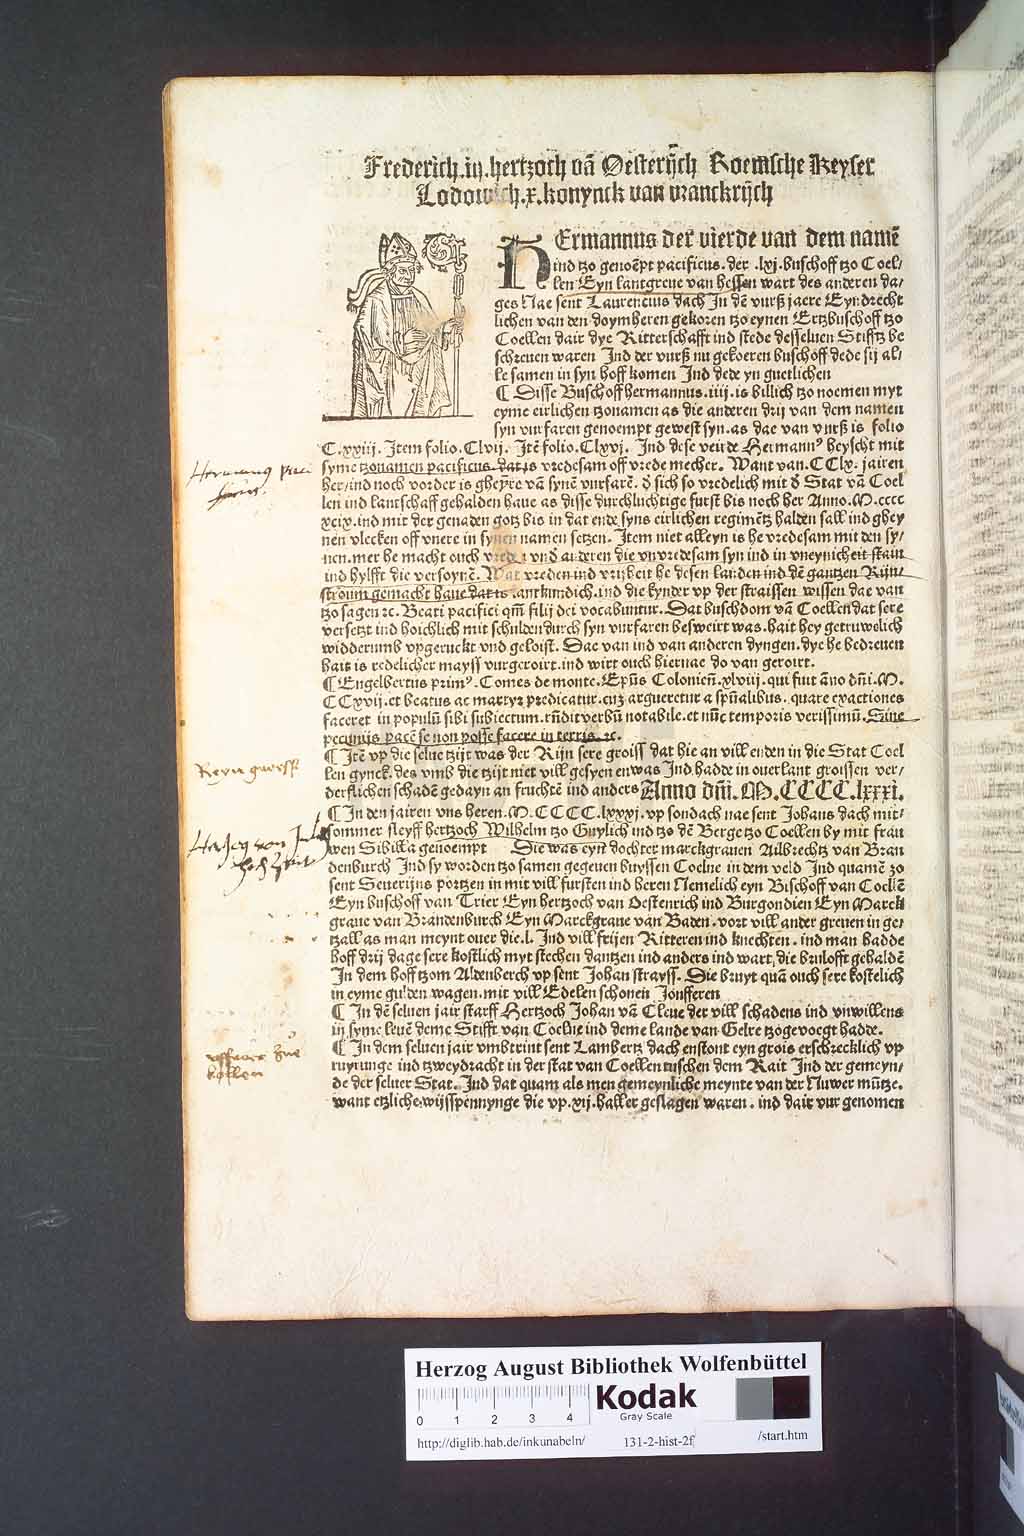 Frederich.iij.hertzoch vã Oesterijch Roemsche Keyser
Lodowich.x.konynck van vranckrijch
HErmannus der vierde van dem namẽ
ind tzo genoẽpt pacificus. der .lxj. buschoff tzo Coel/
len Eyn lantgreue van hessen wart des anderen da/
ges Nae sent Laurencius dach In dẽ vurß jaere Eyndrecht
lichen van den doymheren gekoren tzo eynen Ertzbuschoff tzo
Coellen dair dye Ritterschafft ind stede desseluen Stifftz be
schreuen waren Ind der vurß nu gekoeren buschoff dede sij al/
le samen in syn hoff komen Ind dede yn guetlichen
¶ Disse Buschoff hermannus .iiij. is billich tzo noemen myt
eyme eirlichen tzonamen as die anderen drij van dem namen
syn vurfaren genoempt gewest syn. as dae van vurß is folio
C.xxiij. Item folio. Clvij. Itẽ folio. Clxvj. Ind dese veirde Hermannꝰ heyscht mit
syme tzonamen pacificus. dat is vredesam off vrede mecher. Want van. CClx. jairen
her/ind noch vorder is gheyre van synẽ vursarẽ. d̕ sich so vredelich mit d̕ Stat vã Coel
len ind lantschaff gehalden haue as disse durchluchtige furst bis noch her Anno. M. cccc
xcix. ind mit der genaden gotz bis in dat ende syns eirlichen regimẽtz halden sall ind ghey
nen vlecken off vnere in synen namen setzen. Item niet alleyn is he vredesam mit den sy/
nen. mer he macht ouch vrede vnd anderen die vnvredesam syn ind in vneynicheit stain
ind hylfft die versoynẽ. Wat vreden ind vrijheit he desen landen ind dẽ gantzen Rijn/
stroum gemacht haue dat is .antkundich. ind die kynder vp der straissen wissen dae van
tzo sagen ꝛc. Beati pacifici qm̃ filij dei vocabuntur. Dat buschdom vã Coellen dat sere
versetzt ind hoichlich mit schulden durch syn vurfaren besweirt was. hait hey getruwelich
widderumb vpgeruckt vnd geloist. Dae van ind van anderen dyngen. dye he bedreuen
hait is redelicher mayss vurgeroirt. ind wirt ouch hiernae do van geroirt.
¶ Engelbertus primꝰ. Comes de monte. Epũs Colonieñ. xlviij. qui fuit ãno dñi. M.
CCxvij. et beatus ac martyr predicatur. cuz argueretur a spũalibus. quare exactiones
faceret in populũ sibi subiectum. rñdit verbũ notabile. et nũc temporis verissimũ. Sine
pecunijs pacẽ se non posse facere in terris. ꝛc.
¶ Itẽ vp die selue tzijt was der Rijn sere groiss dat hie an vill enden in die Stat Coel
len gynck. des vmb die tzijt niet vill gesyen en was Ind hadde in ouerlant groissen ver/
derflichen schadẽ gedayn an fruchtẽ ind anders Anno dñi. M. CCCC. lxxxi.
¶ In den jairen vns heren. M. CCCC. lxxxj. vp sondach nae sent Johans dach mit/
sommer sleyff hertzoch Wilhelm tzo Guylich ind tzo dẽ Berge tzo Coellen by mit frau
wen Sibilla genoempt Die was eyn dochter marckgrauen Ailbrechtz van Bran
denburch Ind sy worden tzo samen gegeuen buyssen Coelne in dem veld Ind quamẽ zo
sent Seuerijns portzen in mit vill fursten ind heren Nemelich eyn Bischoff van Coellẽ
Eyn buschoff van Trier Eyn hertzoch van Oestenrich ind Burgondien Eyn Marck
graue van Brandenburch Eyn Marckgraue van Baden. vort vill ander greuen in ge/
tzall as man meynt ouer die. l. Ind vill frijen Ritteren ind knechten. ind man hadde
hoff drij dage sere kostlich myt stechen dantzen ind anders ind wart, die brulofft gehaldẽ
In dem hoff tzom Aldenberch vp sent Johan strayss. Die bruyt quã ouch sere kostelich
in eyme gulden wagen. mit vill Edelen schonen Jonfferen
¶ In dẽ seluen jair starff Hertzoch Johan vã Cleue der vill schadens ind vnwillens
in syme leuẽ deme Stifft van Coelne ind deme lande van Gelre tzogevoegt hadde.
¶ In dem seluen jair vmbtrint sent Lambertz dach enstont eyn grois erschrecklich vp
ruyrunge ind tzweydracht in der stat van Coellen tuschen dem Rait Ind der gemeyn/
de der seluer Stat. Ind dat quam als men gemeynliche meynte van der Nuwer mũtze.
want etzliche. wijsspennynge die vp. xij. haller geslagen waren. ind dair vur genomen
Reyn gross
Herzog von
Herzog August Bibliothek Wolfenbüttel
0 1 2 3 4
Kodak
Gray Scale
http://diglib.hab.de/inkunabeln/ 131-2-hist-2f /start.htm